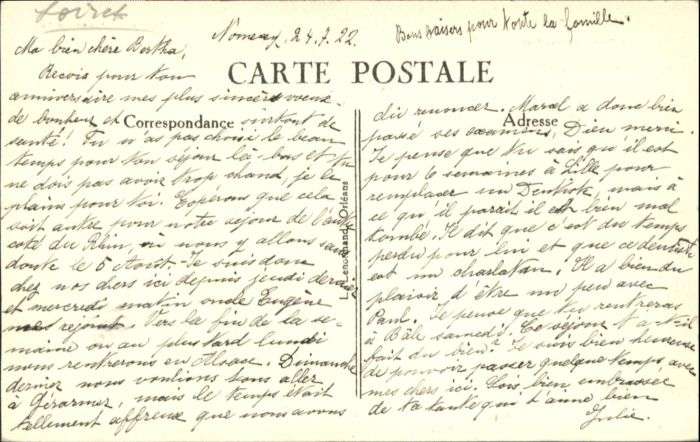 Loiret
Nomeny, 24.7.22
Bons baisers pour toute la famille.
CARTE POSTALE
Correspondance
Adresse
L. Lenormand, Orléans
Ma bien chère Bertha,
Recois pour ton
anniversaire mes plus sincères voeux
de bonheur et surtout de
santé! Tu n'as pas choisi le beau
temps pour ton séjour là-bas et tu
ne dois pas avoir trop chaud, je le
plains pour toi. Espérons que cela
soit autre pour notre séjour de l'autre
coté du Rhin, où nous y allons sans
doute le 5 Août. Je suis donc
chez nos chers ici depuis jeudi dernier
et mercredi matin oncle Eugène
mes rejoint. Vers la fin de la se-
maine ou au plus tard lundi
nous rentrerons en Alsace. Dimanche
dernier nous voulions tous aller
à Gérarmer, mais le temps était
tellement affreux que nous avons
dû renoncer. Marcel a donc bien
passé ses examens, Dieu merci
Je pense que tu sais qu'il est
pour 6 semaines à Lille pour
remplacer un Dentiste, mais à
ce qu'il parait il est bien mal
tombé. Il dit que c'est du temps
perdu pour lui et que ce dentiste
est un charlatan. Il a bien du
plaisir d'être un peu avec
Paul. Je pense que tu rentreras
à Bâle samedi. Le séjour t'a-t-il
fait du bien? Je suis bien heureuse
de pouvoir passer quelque temps, avec
mes chers ici. Sois bien, embrasser
de ta tante qui t'aime bien
Julie.